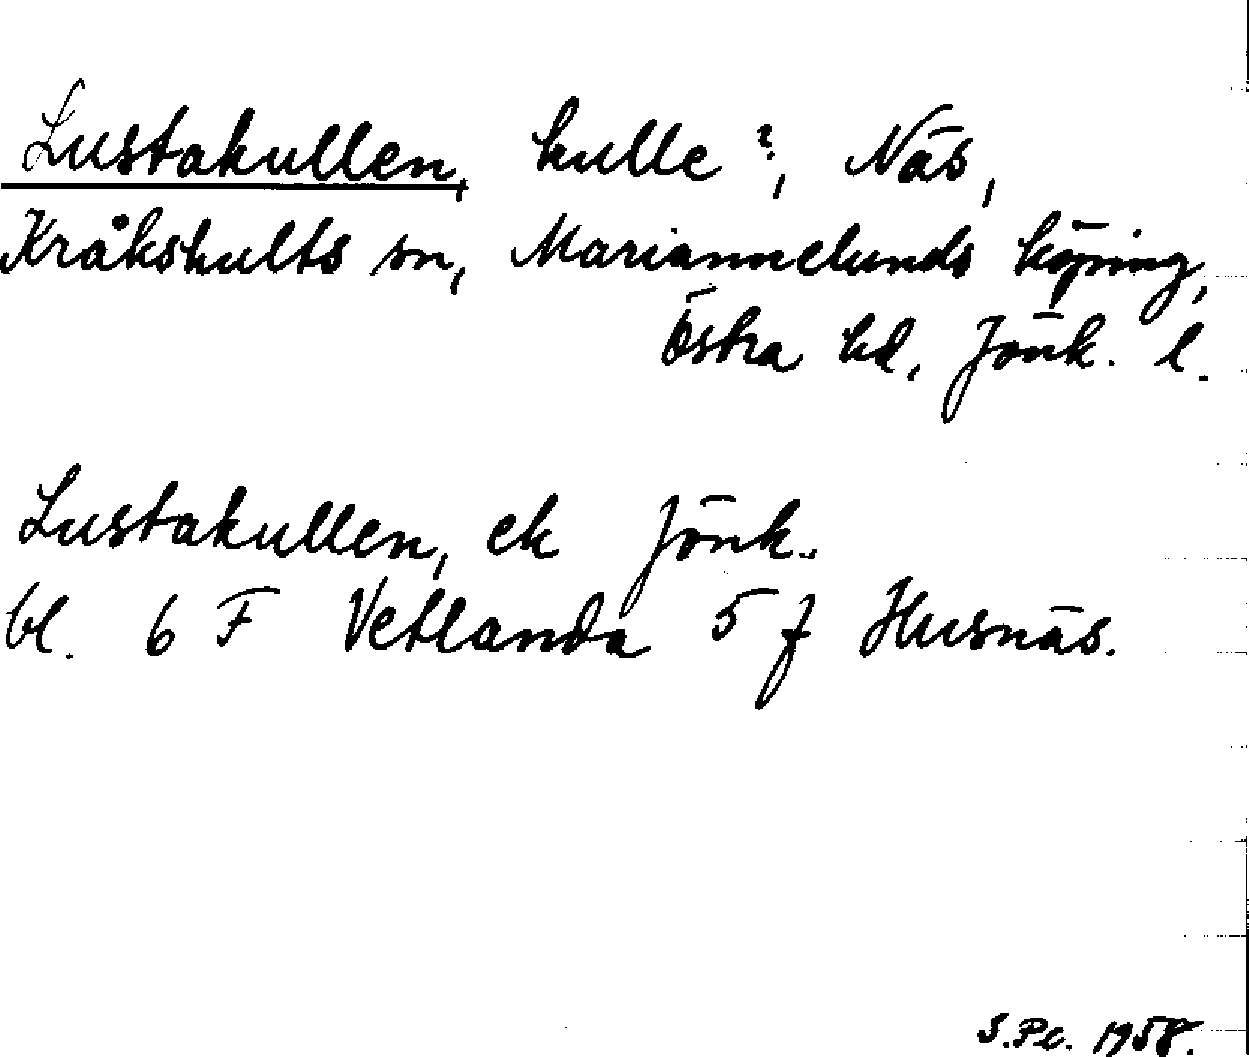 Lustakullen, kulle?, Näs,
Kråkshults sn, Mariannelunds köping,
Östra hd, Jönk. l.
Lustakullen, ek Jönk..
bl. 6 F Vetlanda 5 f Husnäs.
S.Pc. 1958.